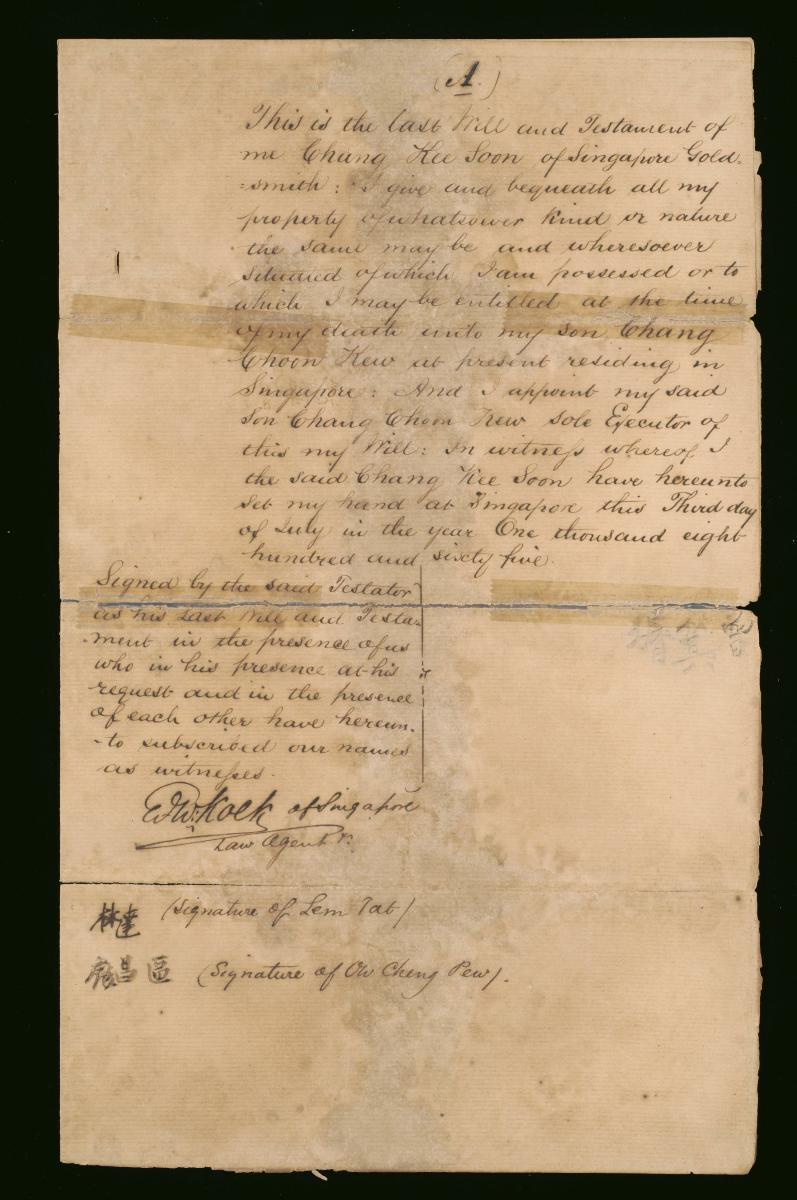 (A.)
This is the last Will and Testament of
me Chang Kee Soon of Singapore Gold=
=smith: I give and bequeath all my
property of whatsoever kind or nature
the same may be and wheresoever
situated of which I am possessed or to
which I may be entitled at the time
of my death unto my son Chang
Choon Kew at present residing in
Singapore: And I appoint my said
son Chang Choon Kew sole Executor of
this my Will: In witness whereof I
the said Chang Kee Soon have hereunto
set my hand at Singapore this Third day
of July in the year One thousand eight
hundred and sixty five.
Signed by the said Testator
as his Last Will and Testa-
-ment in the presence of us
who in his presence at his
request and in the presence
of each other have hereun-
-to subscribed our names
as witnesses.
of Singapore
Law Agent
林達 (Signature of Lem Tat)
昌區 (Signature of Ow Cheng Pew).